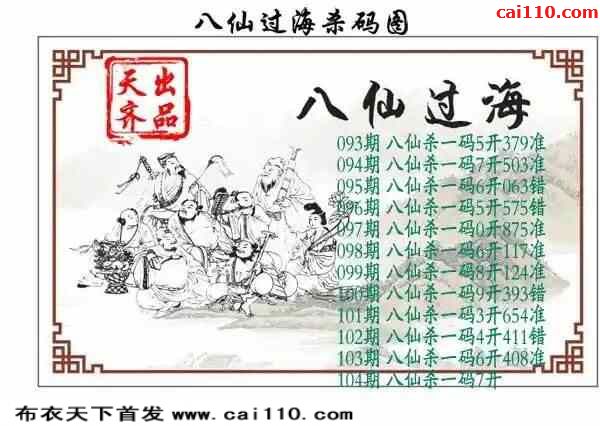 八仙过海杀码图
cai110.com
天齐出品
八仙过海
093期 八仙杀一码5开379准
094期 八仙杀一码7开503准
095期 八仙杀一码6开063错
096期 八仙杀一码5开575错
097期 八仙杀一码0开875准
098期 八仙杀一码6开117准
099期 八仙杀一码8开124准
100期 八仙杀一码9开393错
101期 八仙杀一码3开654准
102期 八仙杀一码4开411错
103期 八仙杀一码6开408准
104期 八仙杀一码7开
布衣天下首发 www.cai110.com